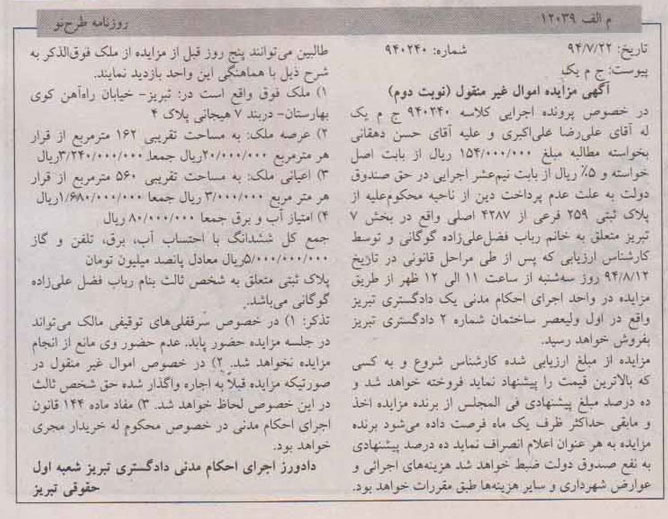 م الف ۱۲۰۳۹
روزنامه طرح‌نو
تاریخ: ۹۴/۷/۲۲ شماره: ۹۴۰۲۴۰
پیوست: ج م یک
آگهی مزایده اموال غیر منقول (نوبت دوم)
در خصوص پرونده اجرایی کلاسه ۹۴۰۲۴۰ ج م یک
له آقای علی‌رضا علی‌اکبری و علیه آقای حسن دهقانی
بخواسته مطالبه مبلغ ۱۵۴/۰۰۰/۰۰۰ ریال از بابت اصل
خواسته و ۵٪ ریال از بابت نیم‌عشر اجرایی در حق صندوق
دولت به علت عدم پرداخت دین از ناحیه محکوم‌علیه از
پلاک ثبتی ۲۵۹ فرعی از ۴۲۸۷ اصلی واقع در بخش ۷
تبریز متعلق به خانم رباب فضل‌علی‌زاده گوگانی و توسط
کارشناس ارزیابی که پس از طی مراحل قانونی در تاریخ
۹۴/۸/۱۲ روز سه‌شنبه از ساعت ۱۱ الی ۱۲ ظهر از طریق
مزایده در واحد اجرای احکام مدنی یک دادگستری تبریز
واقع در اول ولیعصر ساختمان شماره ۲ دادگستری تبریز
بفروش خواهد رسید.
مزایده از مبلغ ارزیابی شده کارشناس شروع و به کسی
که بالاترین قیمت را پیشنهاد نماید فروخته خواهد شد و
ده درصد مبلغ پیشنهادی فی المجلس از برنده مزایده اخذ
و مابقی حداکثر ظرف یک ماه فرصت داده می‌شود برنده
مزایده به هر عنوان اعلام انصراف نماید ده درصد پیشنهادی
به نفع صندوق دولت ضبط خواهد شد هزینه‌های اجرائی و
عوارض شهرداری و سایر هزینه‌ها طبق مقررات خواهد بود.
طالبین می‌توانند پنج روز قبل از مزایده از ملک فوق‌الذکر به
شرح ذیل با هماهنگی این واحد بازدید نمایند.
۱) ملک فوق واقع است در: تبریز- خیابان راه‌آهن کوی
بهارستان- دربند ۷ هیجانی پلاک ۴
۲) عرصه ملک: به مساحت تقریبی ۱۶۲ مترمربع از قرار
هر مترمربع ۲۰/۰۰۰/۰۰۰ ریال جمعا ۳/۲۴۰/۰۰۰/۰۰۰ریال
۳) اعیانی ملک: به مساحت تقریبی ۵۶۰ مترمربع از قرار
هر متر مربع ۳/۰۰۰/۰۰۰ ریال جمعا ۱/۶۸۰/۰۰۰/۰۰۰ریال
۴) امتیاز آب و برق جمعا ۸۰/۰۰۰/۰۰۰ ریال
جمع کل ششدانگ با احتساب آب، برق، تلفن و گاز
۵/۰۰۰/۰۰۰/۰۰۰ریال معادل پانصد میلیون تومان
پلاک ثبتی متعلق به شخص ثالث بنام رباب فضل علی‌زاده
گوگانی می‌باشد.
تذکر: ۱) در خصوص سرقفلی‌های توقیفی مالک می‌تواند
در جلسه مزایده حضور یابد. عدم حضور وی مانع از انجام
مزایده نخواهد شد. ۲) در خصوص اموال غیر منقول در
صورتیکه مزایده قبلاً به اجاره واگذار شده حق شخص ثالث
در این خصوص لحاظ خواهد شد. ۳) مفاد ماده ۱۴۴ قانون
اجرای احکام مدنی در خصوص محکوم له خریدار مجری
خواهد بود.
دادورز اجرای احکام مدنی دادگستری تبریز شعبه اول
حقوقی تبریز